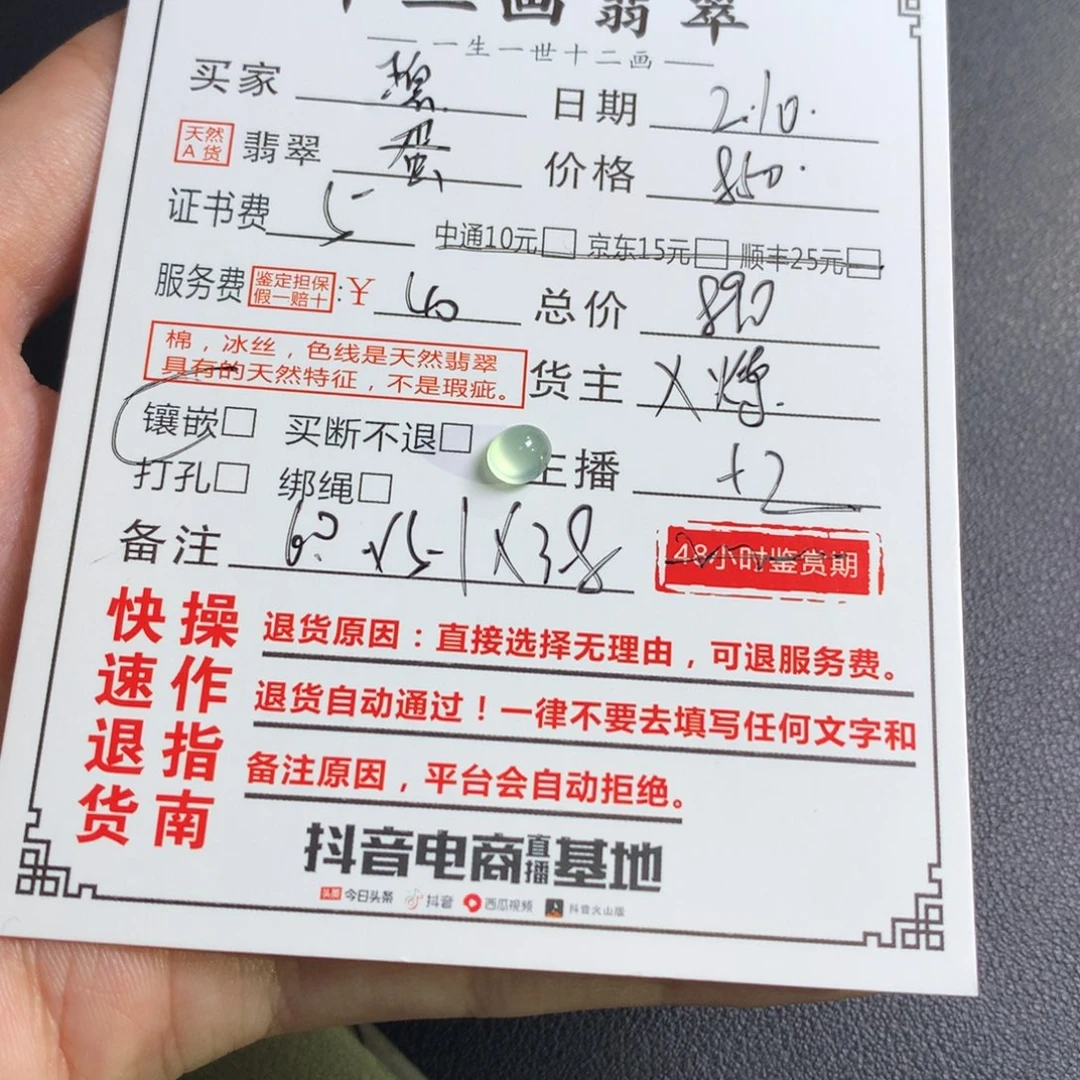 十二画翡翠
一生一世十二画
买家 日期 2.10.
天然A货 翡翠 蛋 价格 850.
证书费 5 中通10元□ 京东15元□ 顺丰25元□
服务费 鉴定担保 假一赔十 :¥ 40 总价 890
棉，冰丝，色线是天然翡翠
具有的天然特征，不是瑕疵。
货主
镶嵌□ 买断不退□ 主播 +2
打孔□ 绑绳□
备注 48小时鉴赏期
快速退货 操作指南
退货原因：直接选择无理由，可退服务费。
退货自动通过！一律不要去填写任何文字和
备注原因，平台会自动拒绝。
抖音电商直播基地
头条 今日头条 抖音 西瓜视频 抖音火山版